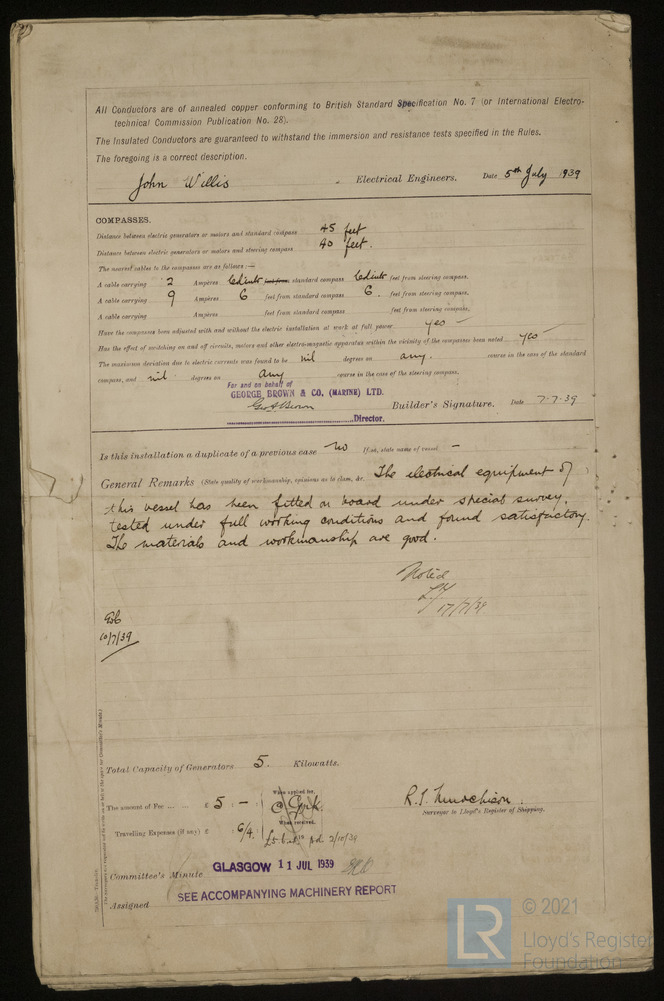 All Conductors are of annealed copper conforming to British Standard Specification No. 7 (or International Electro-
technical Commission Publication No. 28).
The Insulated Conductors are guaranteed to withstand the immersion and resistance tests specified in the Rules.
The foregoing is a correct description.
John Willis Electrical Engineers. Date 5th July 1939
COMPASSES.
Distance between electric generators or motors and standard compass 45 feet
Distance between electric generators or motors and steering compass 40 feet.
The nearest cables to the compasses are as follows :—
A cable carrying 2 Ampères led into feet from standard compass led into feet from steering compass.
A cable carrying 9 Ampères 6 feet from standard compass 6. feet from steering compass.
A cable carrying Ampères feet from standard compass feet from steering compass.
Have the compasses been adjusted with and without the electric installation at work at full power yes —
Has the effect of switching on and off circuits, motors and other electro-magnetic apparatus within the vicinity of the compasses been noted yes —
The maximum deviation due to electric currents was found to be nil degrees on any. course in the case of the standard
compass, and nil degrees on any course in the case of the steering compass.
For and on behalf of
GEORGE BROWN & CO. (MARINE) LTD.
Geo A Brown Builder's Signature. Date 7-7-39
Director.
Is this installation a duplicate of a previous case no If so, state name of vessel —
General Remarks (State quality of workmanship, opinions as to class, &c. The electrical equipment of
this vessel has been fitted on board under special survey,
tested under full working conditions and found satisfactory.
The materials and workmanship are good.
Noted
17/7/39
10/7/39
Total Capacity of Generators 5. Kilowatts.
The amount of Fee ... ... £ 5 : — : When applied for,
R. S. Murchison.
Surveyor to Lloyd's Register of Shipping.
Travelling Expenses (if any) £ : 6/4. When received,
pd 2/10/39
Committee's Minute GLASGOW 11 JUL 1939
SEE ACCOMPANYING MACHINERY REPORT
Assigned
LR © 2021
Lloyd's Register
Foundation